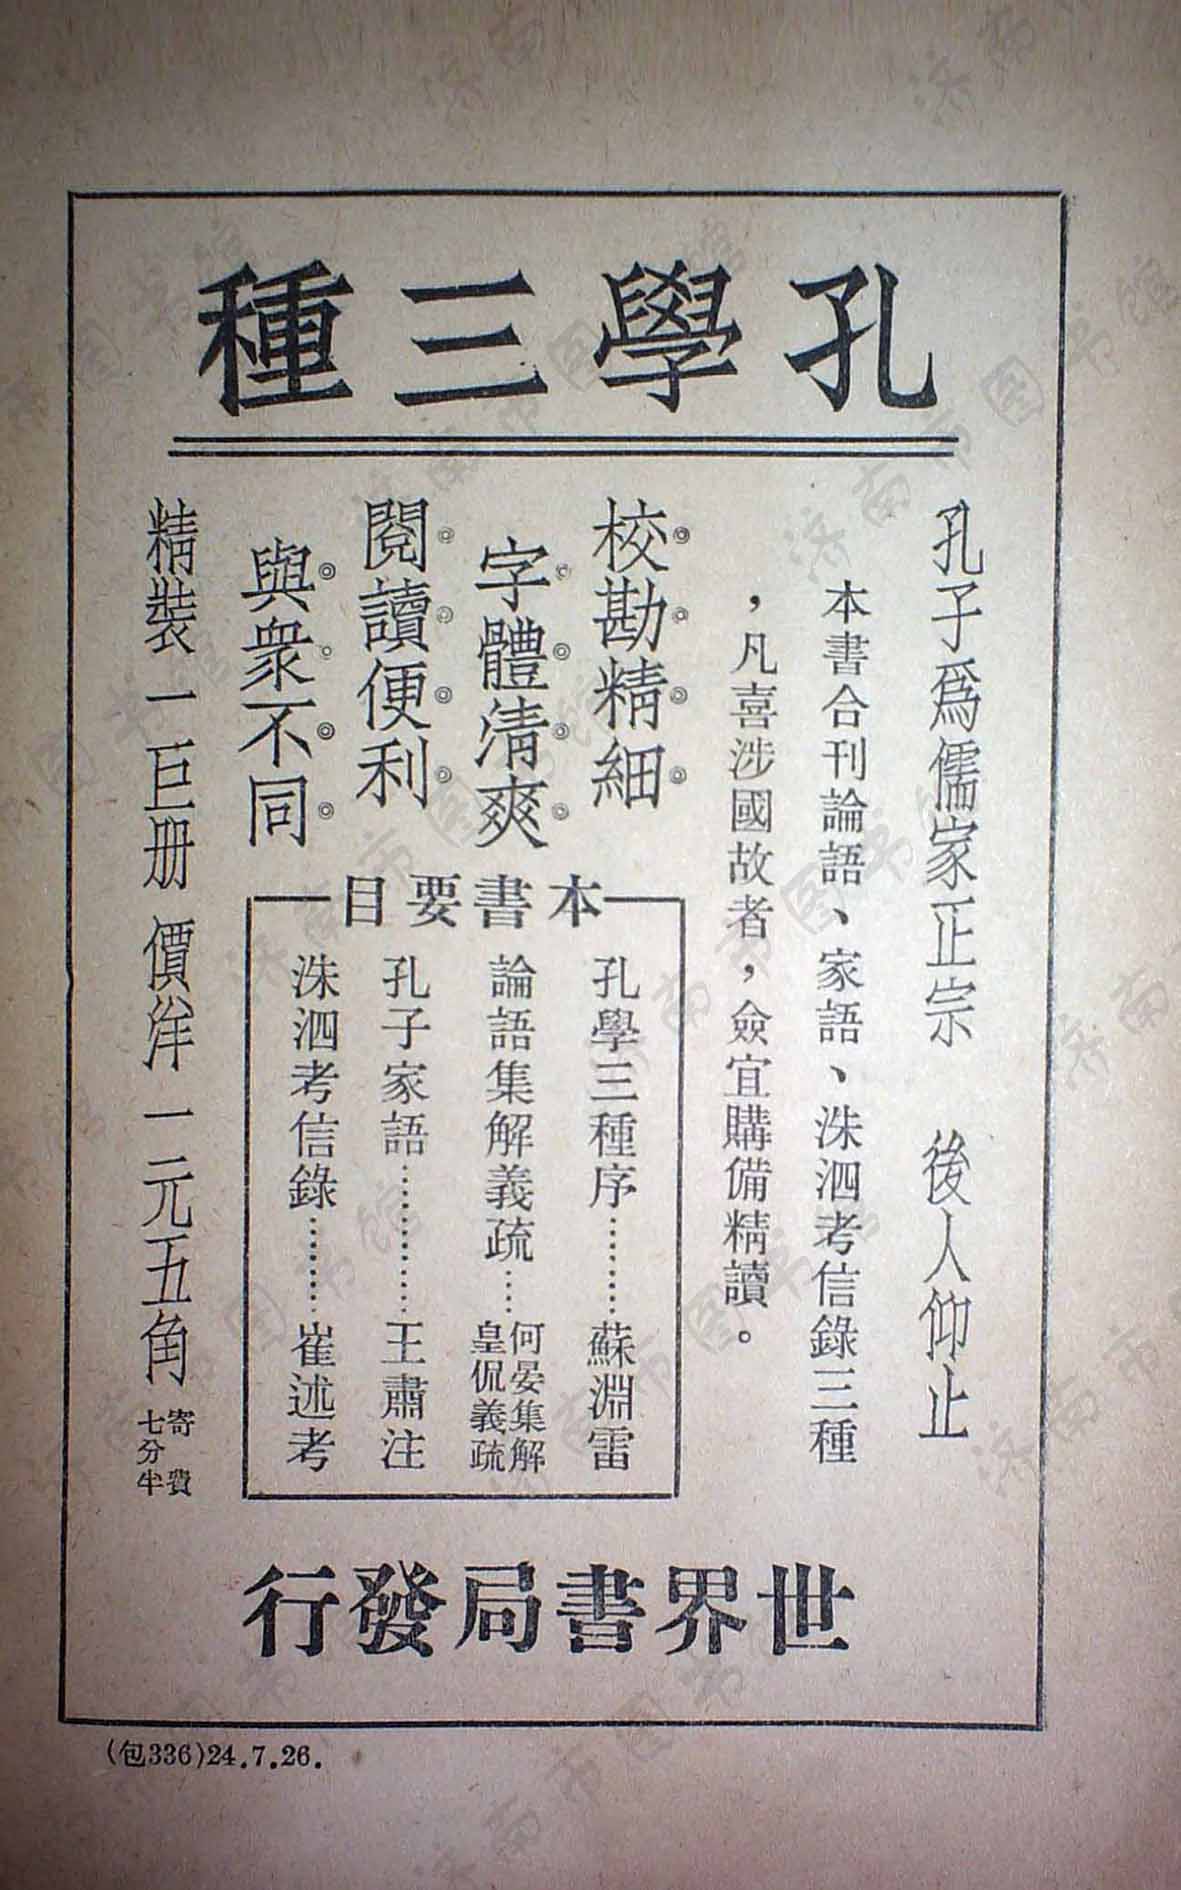 孔學三種
孔子爲儒家正宗　後人仰止
本書合刊論語、家語、洙泗考信錄三種
，凡喜涉國故者，僉宜購備精讀。
校勘精細
字體清爽
閱讀便利
與衆不同
本書要目
孔學三種序………蘇淵雷
論語集解義疏……何晏集解
皇侃義疏
孔子家語…………王肅注
洙泗考信錄………崔述考
精裝一巨册　價洋一元五角
寄費
七分半
世界書局發行
(包336)24.7.26.
济南市图书馆